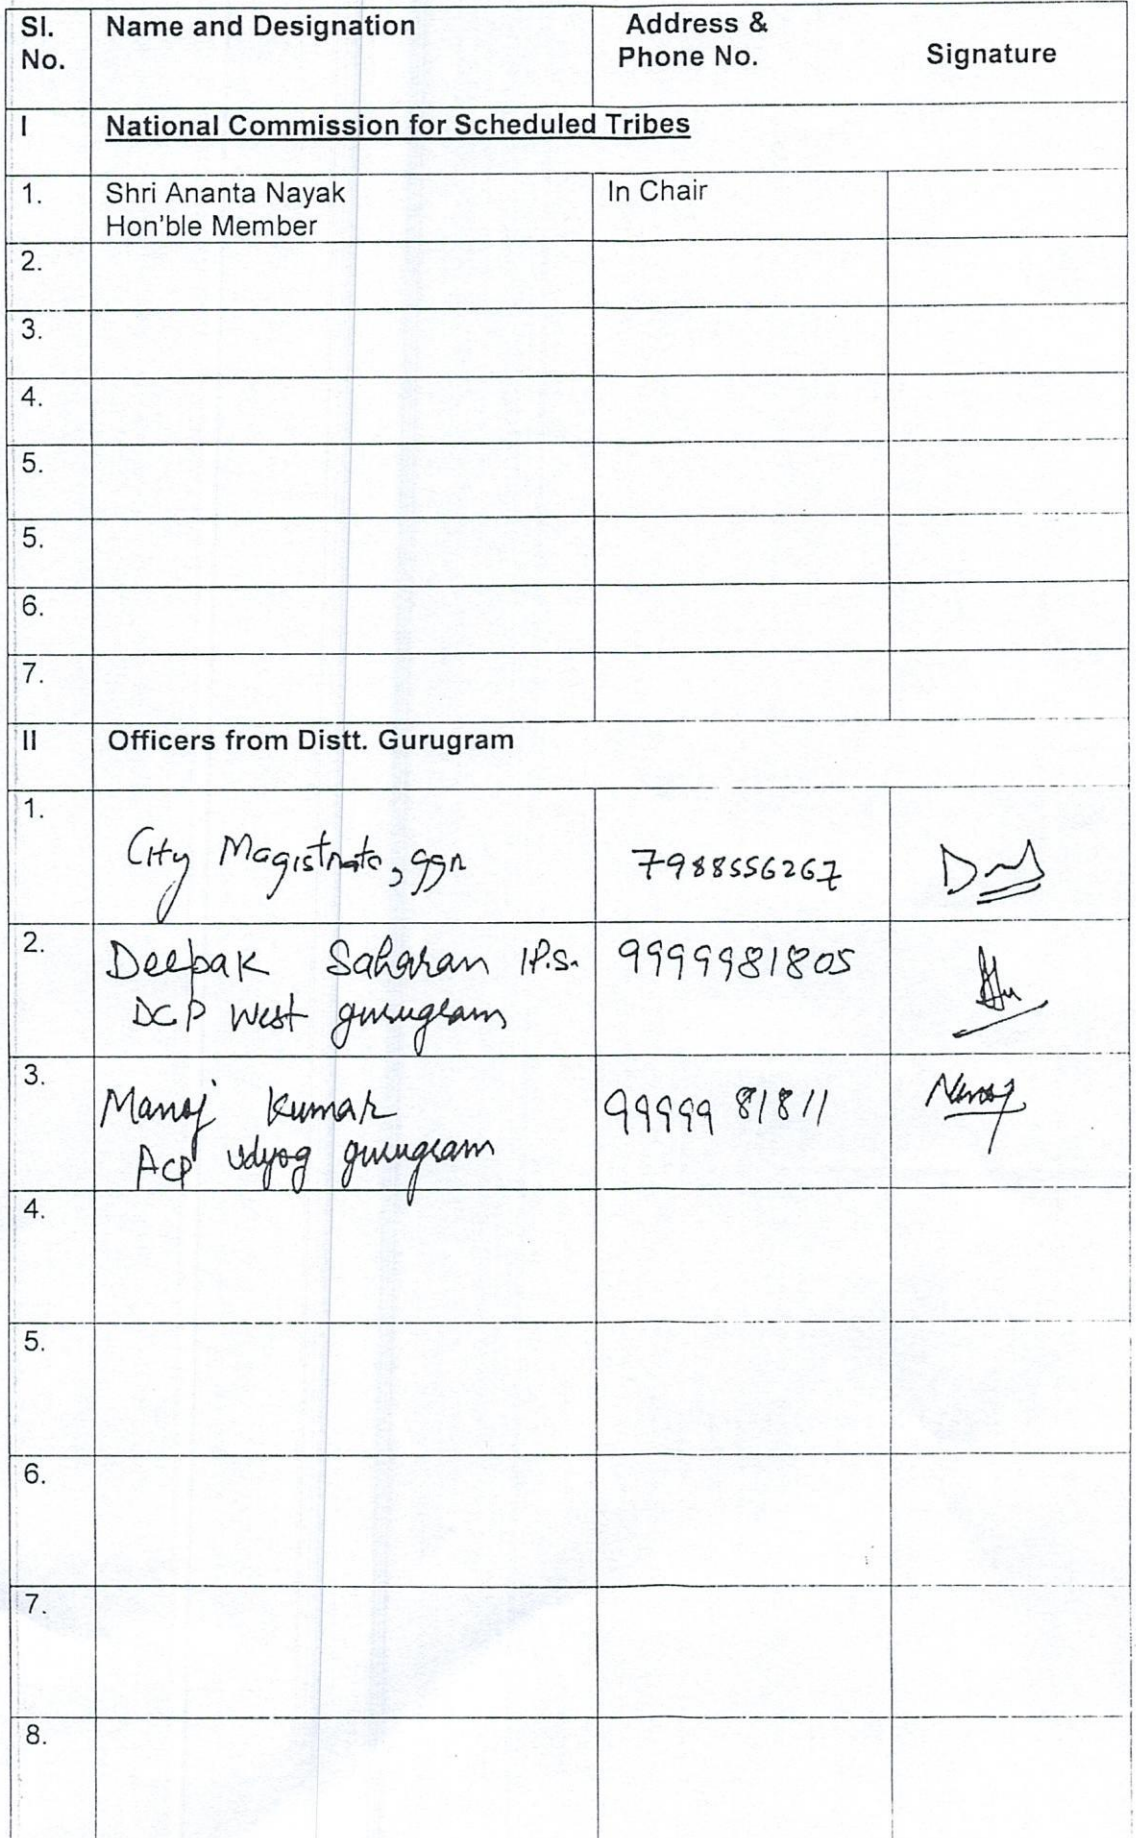 Sl. No.
Name and Designation
Address & Phone No.
Signature
I
National Commission for Scheduled Tribes
1.
Shri Ananta Nayak
Hon'ble Member
In Chair
2.
3.
4.
5.
5.
6.
7.
II
Officers from Distt. Gurugram
1.
City Magistrate, ggn
7988556267
2.
Deepak Saharan IP.S.
DCP West gurugram
9999981805
3.
Manoj Kumar
ACP Udyog gurugram
99999 81811
4.
5.
6.
7.
8.